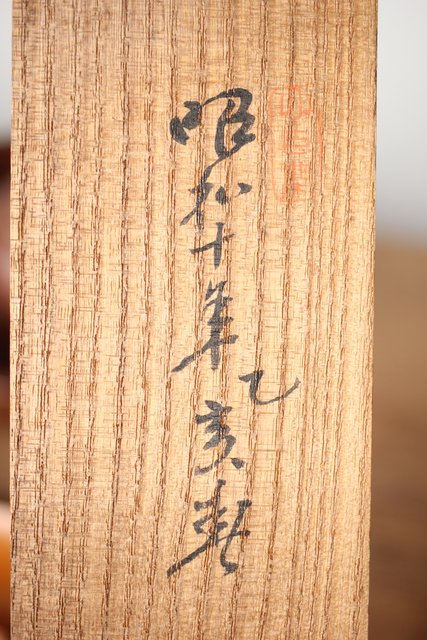 昭和十年乙亥春